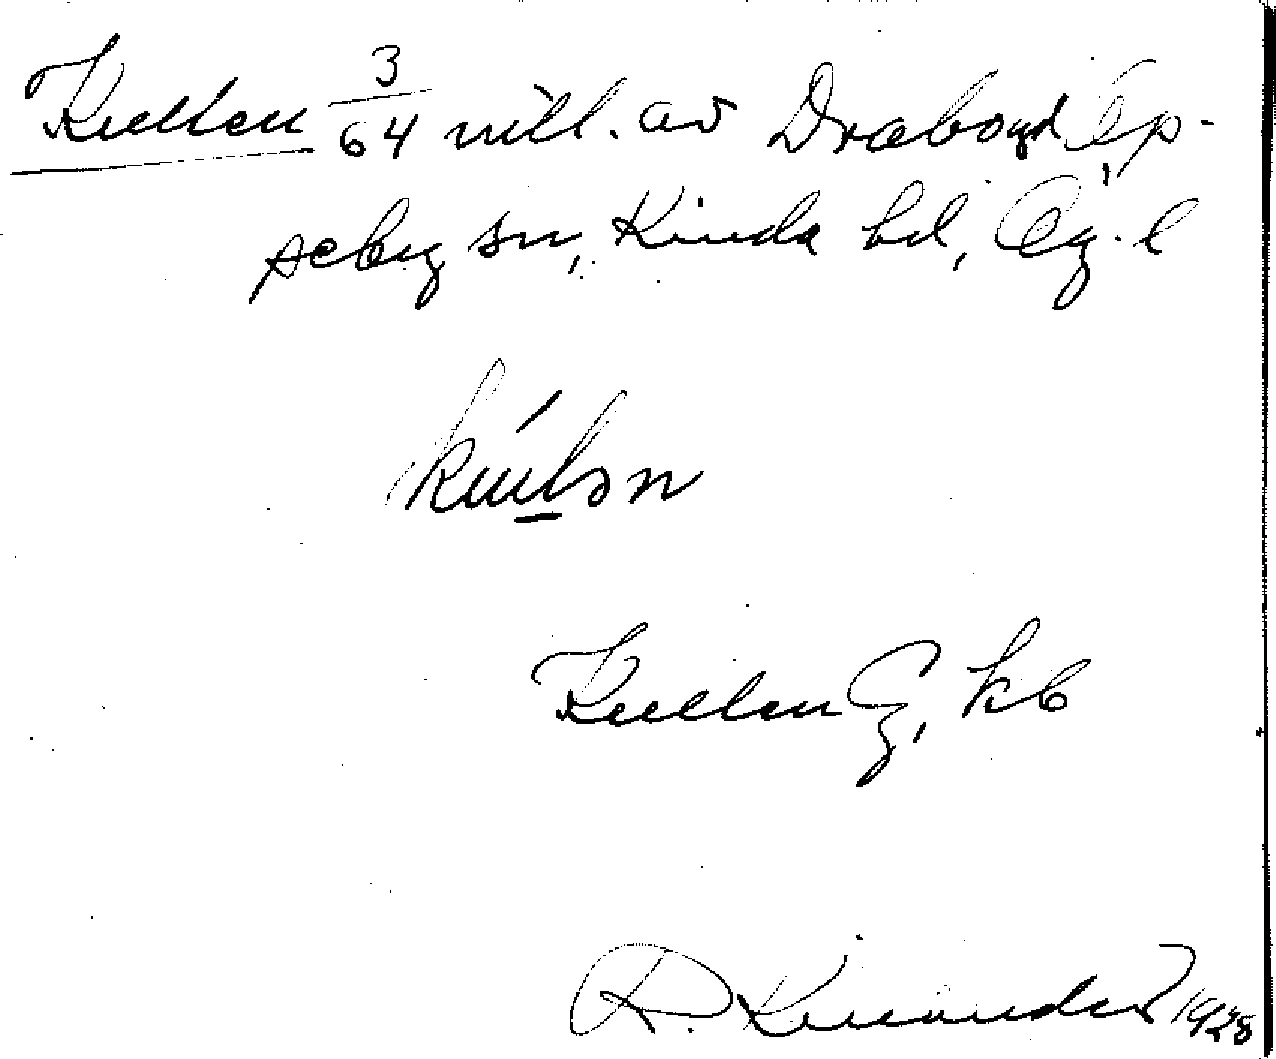 Kullen 3/64 mtl. av Drabo
sn, Kinda hd, Ög. l
Kullen G, kb
R. Kinander 1928